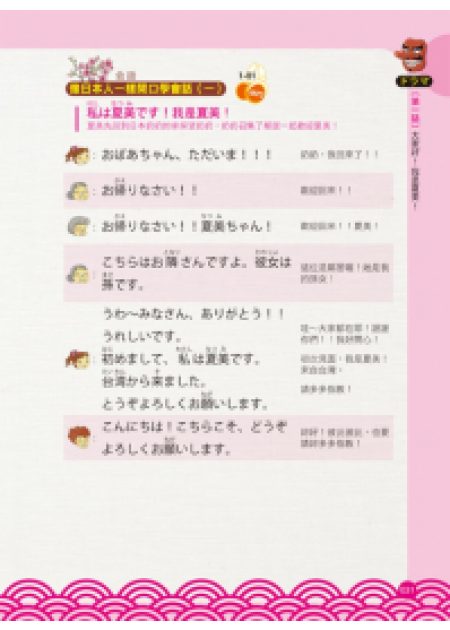 會話
像日本人一樣開口學會話（一）
1-01
私は夏美です！我是夏美！
おばあちゃん、ただいま！！！
奶奶，我回來了！！
お帰りなさい！！
歡迎回來！！
お帰りなさい！！夏美ちゃん！
歡迎回來！！夏美！
こちらはお隣さんですよ。彼女は
孫です。
うわ～みなさん、ありがとう！！
うれしいです。
初めまして、私は夏美です。
台湾から来ました。
とうぞよろしくお願いします。
哇～大家都在耶！謝謝
你們！！我好開心！
初次見面，我是夏美！
來自台灣，
請多多指教！
こんにちは！こちらこそ、どうぞ
よろしくお願いします。
請多多指教！
ドラマ
【第一話】大家好！我是夏美！